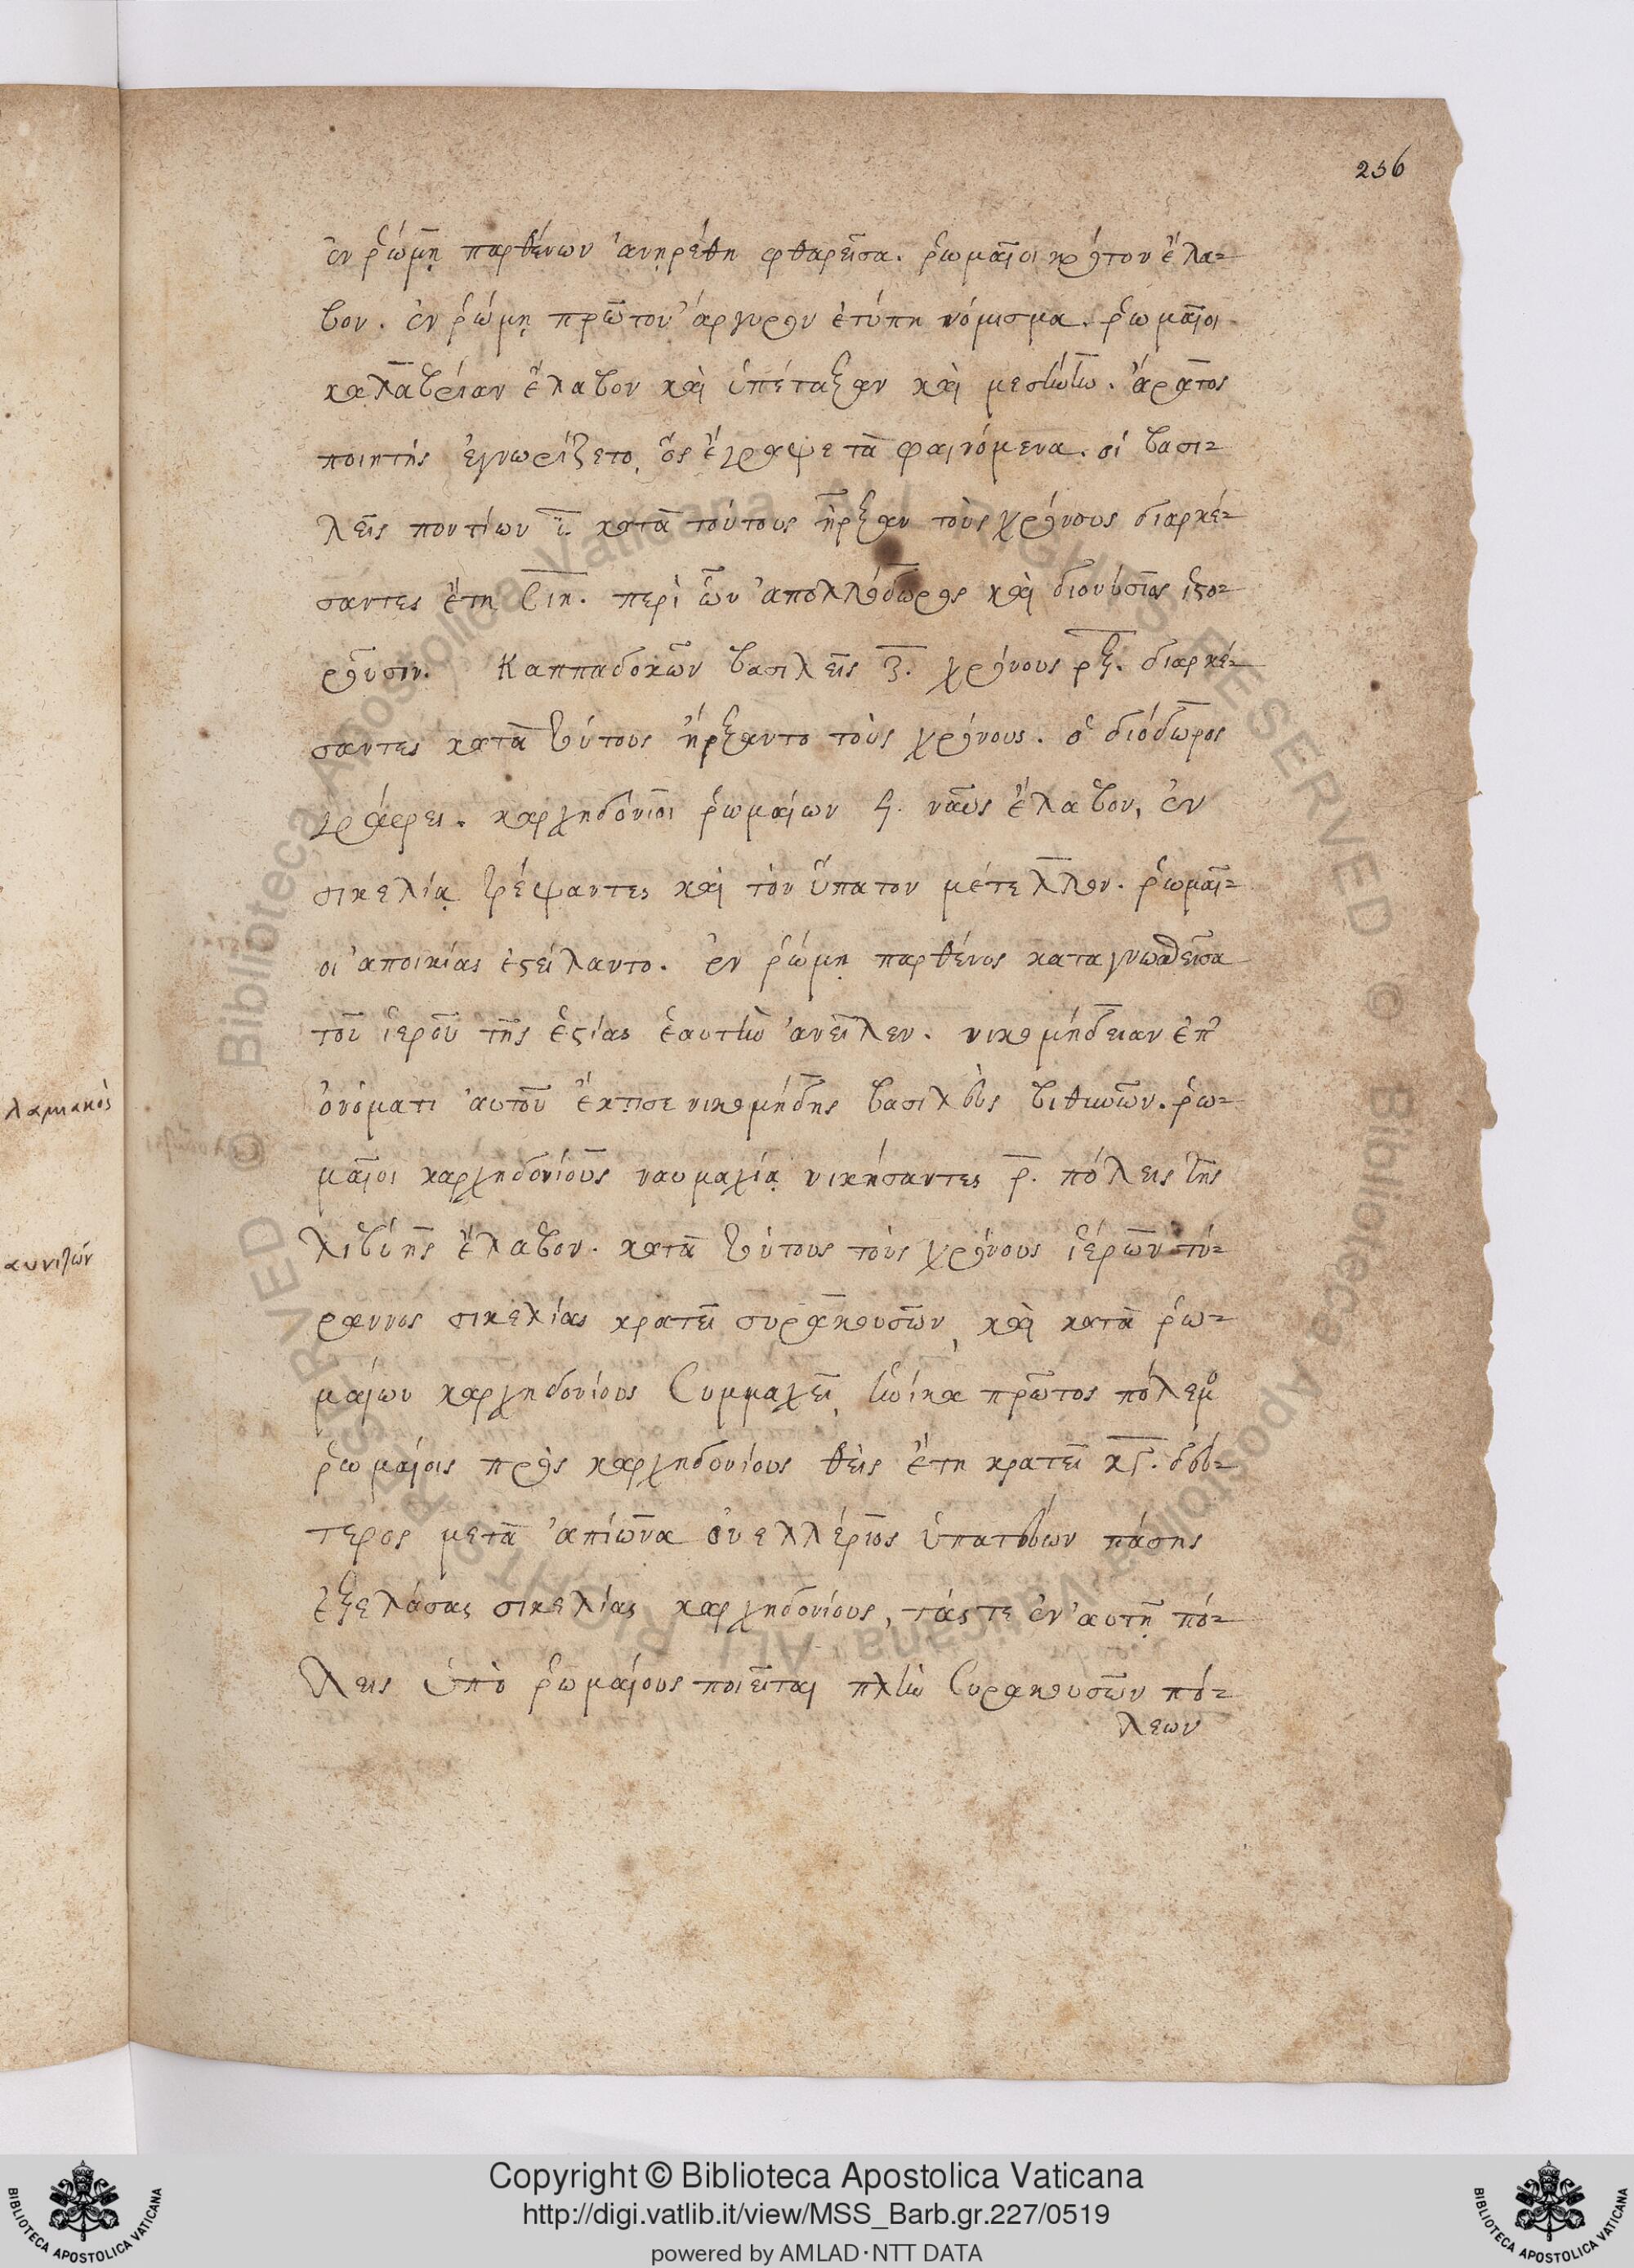 256
ἐν ῥώμῃ παρθένων ἀνῃρέθη φθαρεῖσα. ῥωμαῖοι κρότον ἔλα-
βον. ἐν ῥώμῃ πρῶτον ἀργυροῦν ἐτύπη νόμισμα. ῥωμαῖοι
καλαβρίαν ἔλαβον καὶ ὑπέταξαν καὶ μεσίωίω. ἄρατος
ποιητής ἐγνωρίζετο, ὃς ἔγραψε τὰ φαινόμενα. οἱ βασι-
λεῖς ποντίων ῑ. κατὰ τούτους ἦρξαν τοὺς χρόνους διαρκέ-
σαντες ἔτη σιη. περὶ ὧν ἀπολλόδωρος καὶ διονύσιος ἱστο-
ροῦσιν. Καππαδοκῶν βασιλεῖς ζ. χρόνους ρξ. διαρκέ-
σαντες κατὰ τούτους ἤρξαντο τοὺς χρόνους. ὁ διόδωρος
γράφει. καρχηδόνιοι ῥωμαίων ϟ. ναῦς ἔλαβον, ἐν
σικελίᾳ τρέψαντες καὶ τὸν ὕπατον μέτελλον. ῥωμαῖ-
οι ἀποικίας ἐστείλαντο. ἐν ῥώμῃ παρθένος καταγνωσθεῖσα
τοῦ ἱεροῦ τῆς ἑστίας ἑαυτὴν ἀνεῖλεν. νικομήδειαν ἐπ'
ὀνόματι αὐτοῦ ἔκτισε νικομήδης βασιλεὺς βιθυνῶν. ῥω-
μαῖοι καρχηδονίους ναυμαχίᾳ νικήσαντες ρ. πόλεις τῆς
λιβύης ἔλαβον. κατὰ τούτους τοὺς χρόνους ἱέρων τύ-
ραννος σικελίας κρατεῖ συρακουσῶν, καὶ κατὰ ῥω-
μαίων καρχηδονίους συμμαχεῖ, ἡνίκα πρῶτος πόλεμο
ῥωμαίοις πρὸς καρχηδονίους θεὶς ἔτη κρατεῖ κγ. δεύ-
τερος μετὰ ἀπίωνα οὐελλέριος ὑπατεύων πάσης
ἐξελάσας σικελίας καρχηδονίους, τάς τε ἐν αὐτῇ πό-
λεις ὑπὸ ῥωμαίους ποιεῖται πλὴν συρακουσῶν πό-
λεων
Copyright © Biblioteca Apostolica Vaticana
http://digi.vatlib.it/view/MSS_Barb.gr.227/0519
powered by AMLAD·NTT DATA